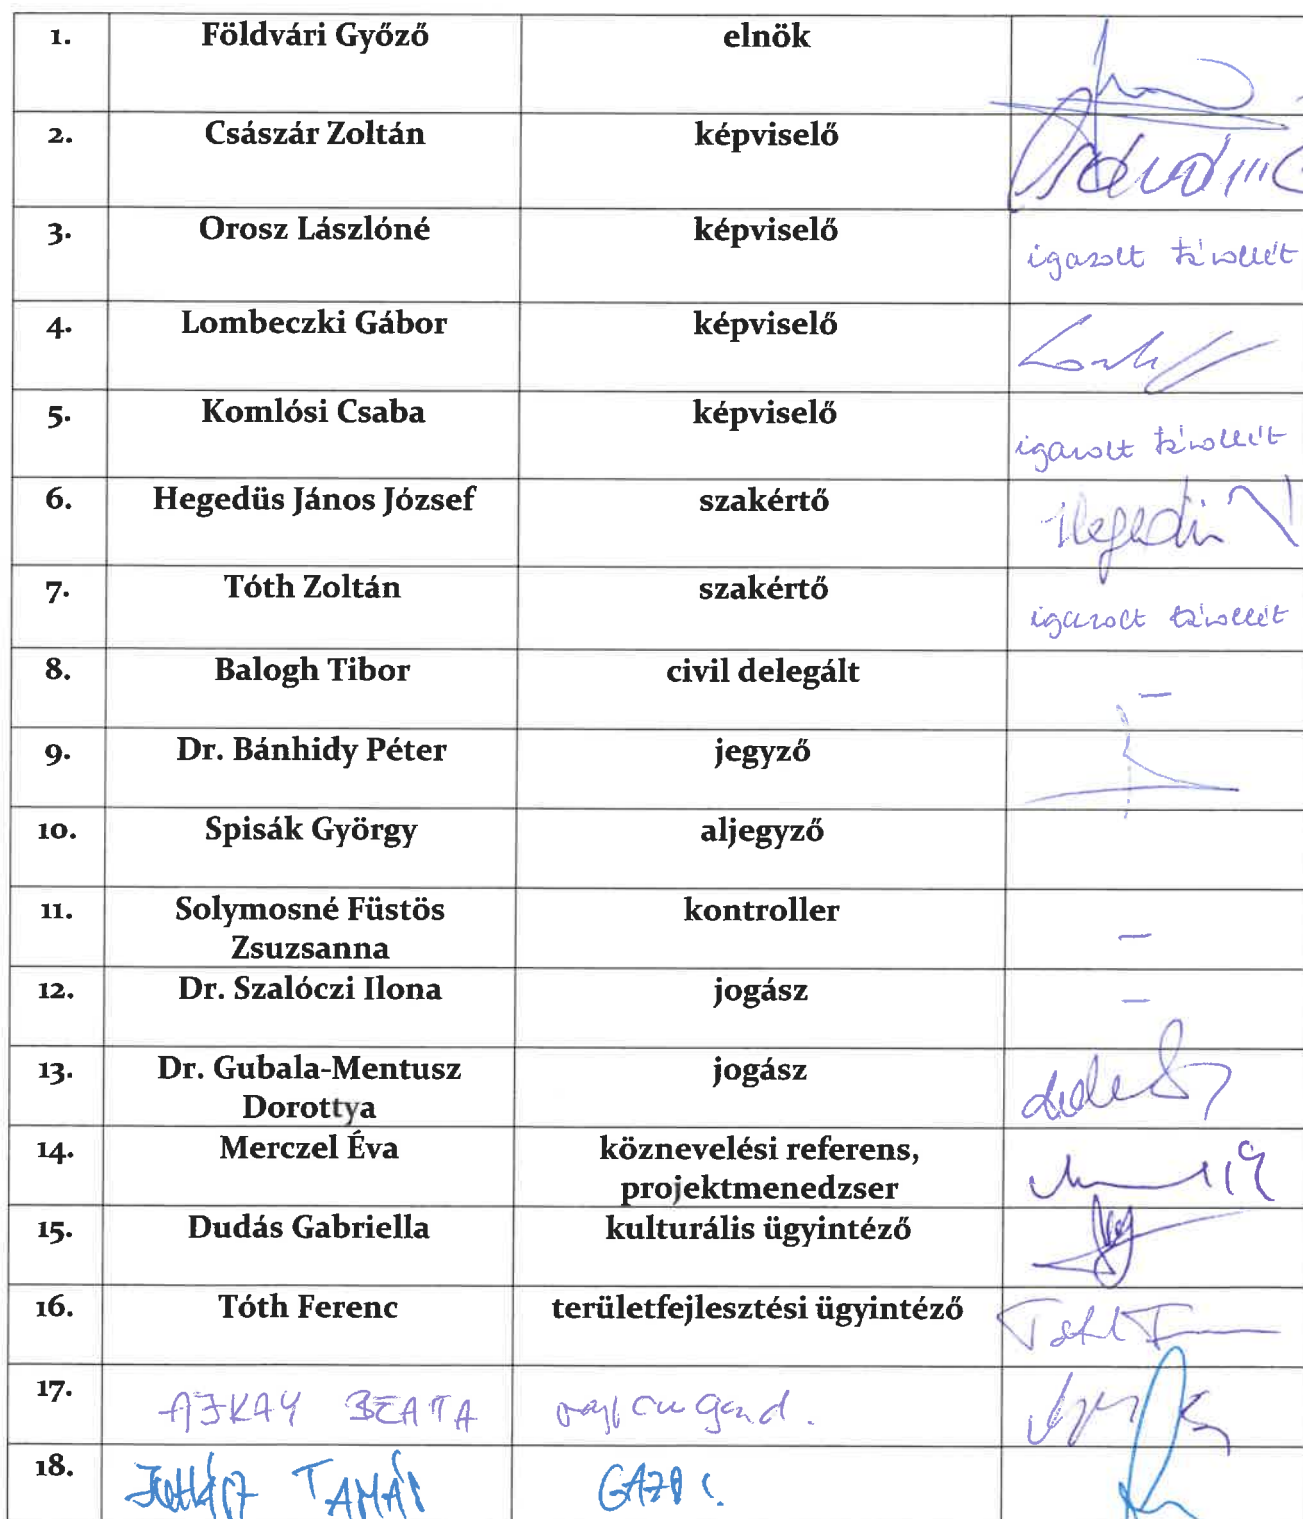 1. Földvári Győző elnök
2. Császár Zoltán képviselő
3. Orosz Lászlóné képviselő igazolt távollét
4. Lombeczki Gábor képviselő
5. Komlósi Csaba képviselő igazolt távollét
6. Hegedüs János József szakértő Hegedüs
7. Tóth Zoltán szakértő igazolt távollét
8. Balogh Tibor civil delegált –
9. Dr. Bánhidy Péter jegyző
10. Spisák György aljegyző
11. Solymosné Füstös kontroller –
Zsuzsanna
12. Dr. Szalóczi Ilona jogász –
13. Dr. Gubala-Mentusz jogász
Dorottya
14. Merczel Éva köznevelési referens,
projektmenedzser
15. Dudás Gabriella kulturális ügyintéző
16. Tóth Ferenc területfejlesztési ügyintéző Tóth F
17. AJKAY BEATA
18. TAMÁS